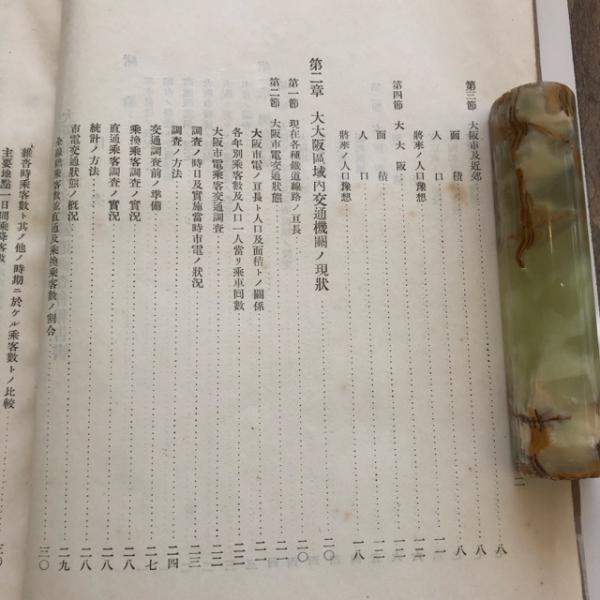 第三節 大阪市及近郊 八
面積 八
人口 一一
將來ノ人口豫想 一二
第四節 大大阪 一六
面積
人口 一八
將來ノ人口豫想
第二章 大大阪區域內交通機關ノ現狀 二〇
第一節 現在各種鐵道線路ノ亘長 二〇
第二節 大阪市電交通狀態 二一
大阪市電ノ亘長ト人口及面積トノ關係 二一
各年別乘客數及人口一人當リ乘車回數 二二
大阪市電乘客交通調査 二二
調査ノ時日及實施當時市電ノ狀況 二三
調査ノ方法 二四
交通調査前ノ準備 二七
乘換乘客調査ノ實況 二八
直通乘客調査ノ實況 二八
統計ノ方法 二八
市電交通狀態ノ槪況 二九
全線總乘客數並直通及乘換乘客數ノ割合 三〇
線各時乘客數ト其ノ他ノ時期ニ於ケル乘客數トノ比較
主要地點一日間乘降客數 三〇